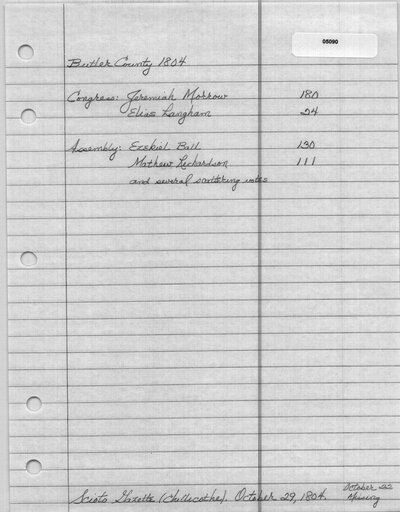 05090
Butler County 1804
Congress: Jeremiah Morrow 180
Elias Langham 24
Assembly: Ezekiel Ball 130
Mathew Richardson 111
and several scattering votes
Scioto Gazette (Chillicothe). October 29, 1804.
October 22
Missing